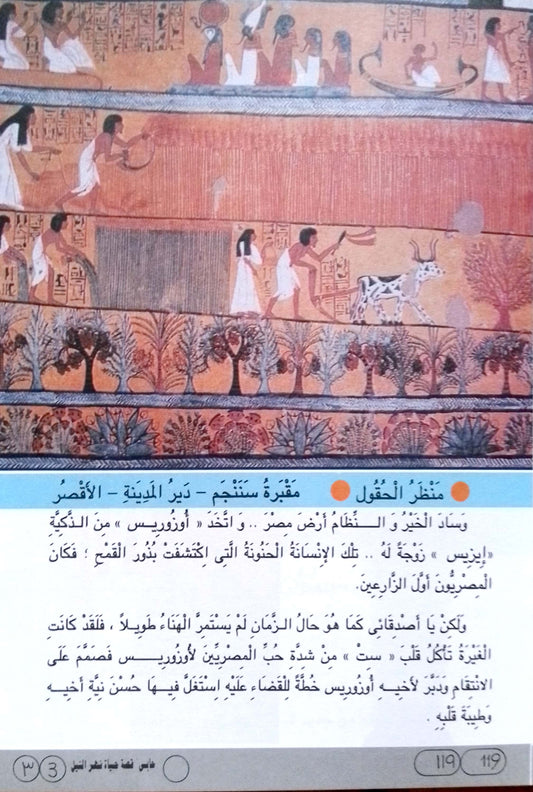 مَنْظَرُ الْحُقُول مَقْبَرَةُ سَنَنْجَم - دَيرُ المَدِينَةِ - الأَقْصُر
وَسَادَ الْخَيْرُ وَ الـنِّظَامُ أَرْضَ مِصْرَ .. وَ اتَّخَذَ « أُوزُوريـس » مِنَ الـذَّكِيَّةِ
«إيزِيس » زَوْجَةً لَهُ .. تِلْكَ الإنْسَانَةُ الْحَنُونَةُ الَّتِى اكْتَشَفَتْ بُذُورَ الْقَمْحِ ؛ فَكَانَ
الْمِصْرِيُّونَ أَوَّلَ الزَّارِعِينَ.
وَلَكِنْ يَا أَصْدِقَائِى كَمَا هُوَ حَالُ الـزَّمَانِ لَمْ يَسْتَمِرَّ الْهَنَاءُ طَوِيـلاً ، فَلَقَدْ كَانَتِ
الْغَيْرَةُ تَأْكُلُ قَلْبَ « سِتْ » مِنْ شِدَّةِ حُبِّ الْمِصْرِيِّينَ لأُوزُوريـــس فَصَمَّمَ عَلَى
الانْتِقَامِ وَدَبَّرَ لأَخِيـهِ أُوزُوريس خُطَّةً لِلْقَضَاءِ عَلَيْهِ اِسْتَغَلَّ فِيـهَا حُسْنَ نِيَّةِ أَخِيـهِ
وَطِيبَةَ قَلْبِهِ .
٣ 3 حابى قصة حياة نهر النيل 119 119